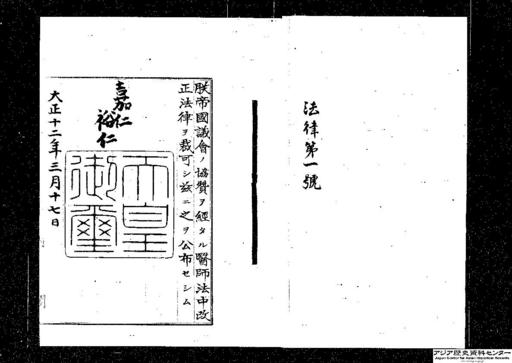 法律第一號
朕帝國議會ノ協贊ヲ經タル醫師法中改
正法律ヲ裁可シ茲ニ之ヲ公布セシム
嘉仁
裕仁
天皇
御璽
大正十二年三月十七日
アジア歴史資料センター
Japan Center for Asian Historical Records